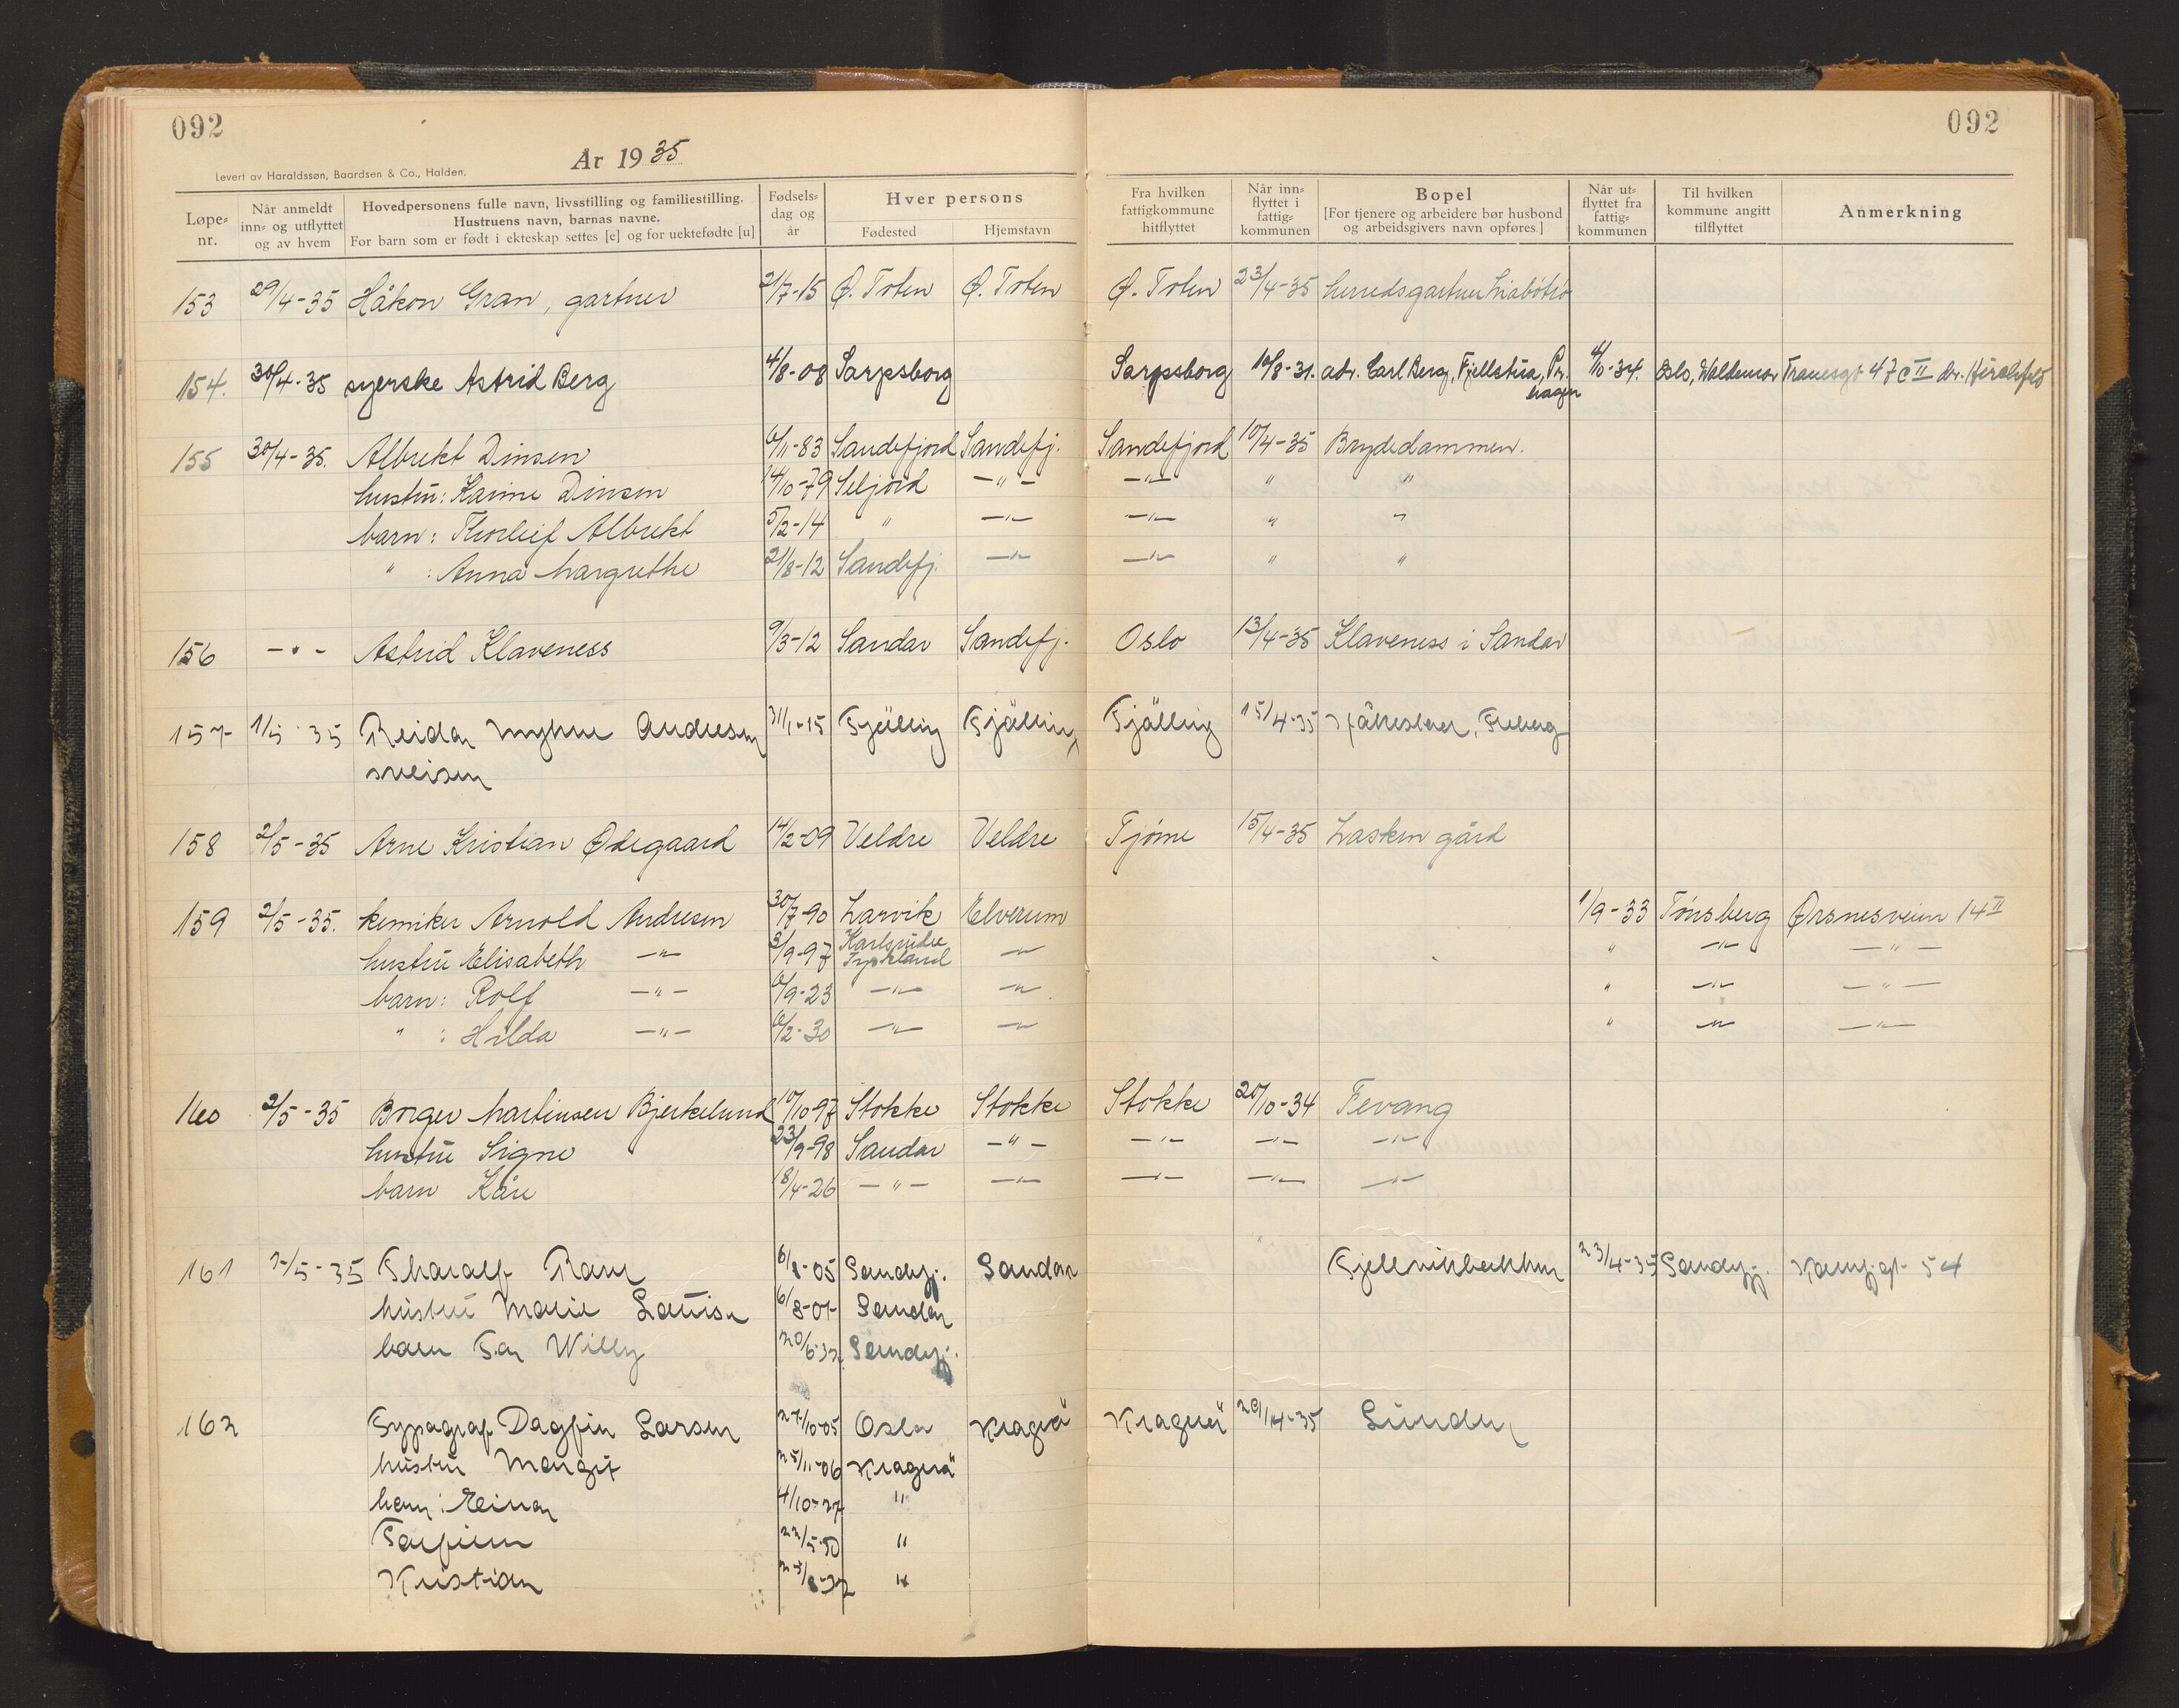 092
092
År 1935
Levert av Haraldssøn, Baardsen & Co., Halden.
Løpe-nr.
Når anmeldt inn- og utflyttet og av hvem
Hovedpersonens fulle navn, livsstilling og familiestilling.
Hustruens navn, barnas navne.
For barn som er født i ekteskap settes [e] og for uektefødte [u]
Fødsels-dag og år
Hver persons
Fødested
Hjemstavn
Fra hvilken fattigkommune hitflyttet
Når inn-flyttet i fattig-kommunen
Bopel
[For tjenere og arbeidere bør husbond og arbeidsgivers navn opføres.]
Når ut-flyttet fra fattig-kommunen
Til hvilken kommune angitt tilflyttet
Anmerkning
153 29/4-35 Håkon Gran, gartner 2/7-15 Ø. Toten Ø. Toten Ø. Toten 23/4-35 herredsgartner
154. 30/4-35 syerske Astrid Berg 4/8-08 Sarpsborg Sarpsborg 10/8-31. adr. Carl Berg, Fjellstua, Pr. hagen 4/10-34. Oslo, Waldemar Tranesgt 47c II dr. Hirchfeld
155 30/4-35. Albrekt Dinsen 6/11-83 Sandefjord Sandefj. Sandefjord 10/4-35 Brydedammen.
hustru: Karine Dinsen 14/10-79 Seljord -"- -"- " "
barn: Thorleif Albrekt 5/2-14 " -"- -"- " "
" : Anna Margrethe 21/8-12 Sandefj. -"- -"- " "
156 -"- Astrid Klaveness 9/3-12 Sandar Sandefj. Oslo 13/4-35 Klaveness i Sandar
157 1/5 35 Reidar Myhre Andresen 31/1-15 Tjølling Tjølling Tjølling 15/4-35 Freberg
sveiser
158 2/5-35 Arne Kristian Ødegaard 14/2-09 Veldre Veldre Tjøme 15/4-35 Lasken gård
159 2/5-35. kemiker Arnold Andresen 30/7-90 Larvik Elverum 1/9-33 Tønsberg Ørsnesveien 14 II
hustru Elisabeth -"- 3/9-97 Karlsruhe Tyskland -"- " -"- -"-
barn: Rolf -"- 6/9-23 -"- -"- " -"- -"-
" : Hilda -"- 6/2-30 -"- -"- " -"- -"-
160 2/5-35 Borger Martinsen Bjerkelund 10/10-97 Stokke Stokke Stokke 20/10-34 Fevang
hustru Signe 23/9-98 Sandar -"- -"- -"- -"-
barn Kåre 18/4-26 -"- -"- -"- -"- -"-
161 2/5-35 Tharalf 6/8-05 Sandefj. Sandar Fjellvikbakken 23/4-35 Sandefj. 54
hustru Marie Louise 6/8-07 Sandar
barn Tor Willy 20/6-32 Sandefj.
162 Typograf Dagfin Larsen 27/10-05 Oslo Kragerø Kragerø 29/4-35 Lunden
hustru Margit 25/11-06 Kragerø
barn: Reinar 4/10-27 "
Torfinn 22/5-30 "
Kristian "